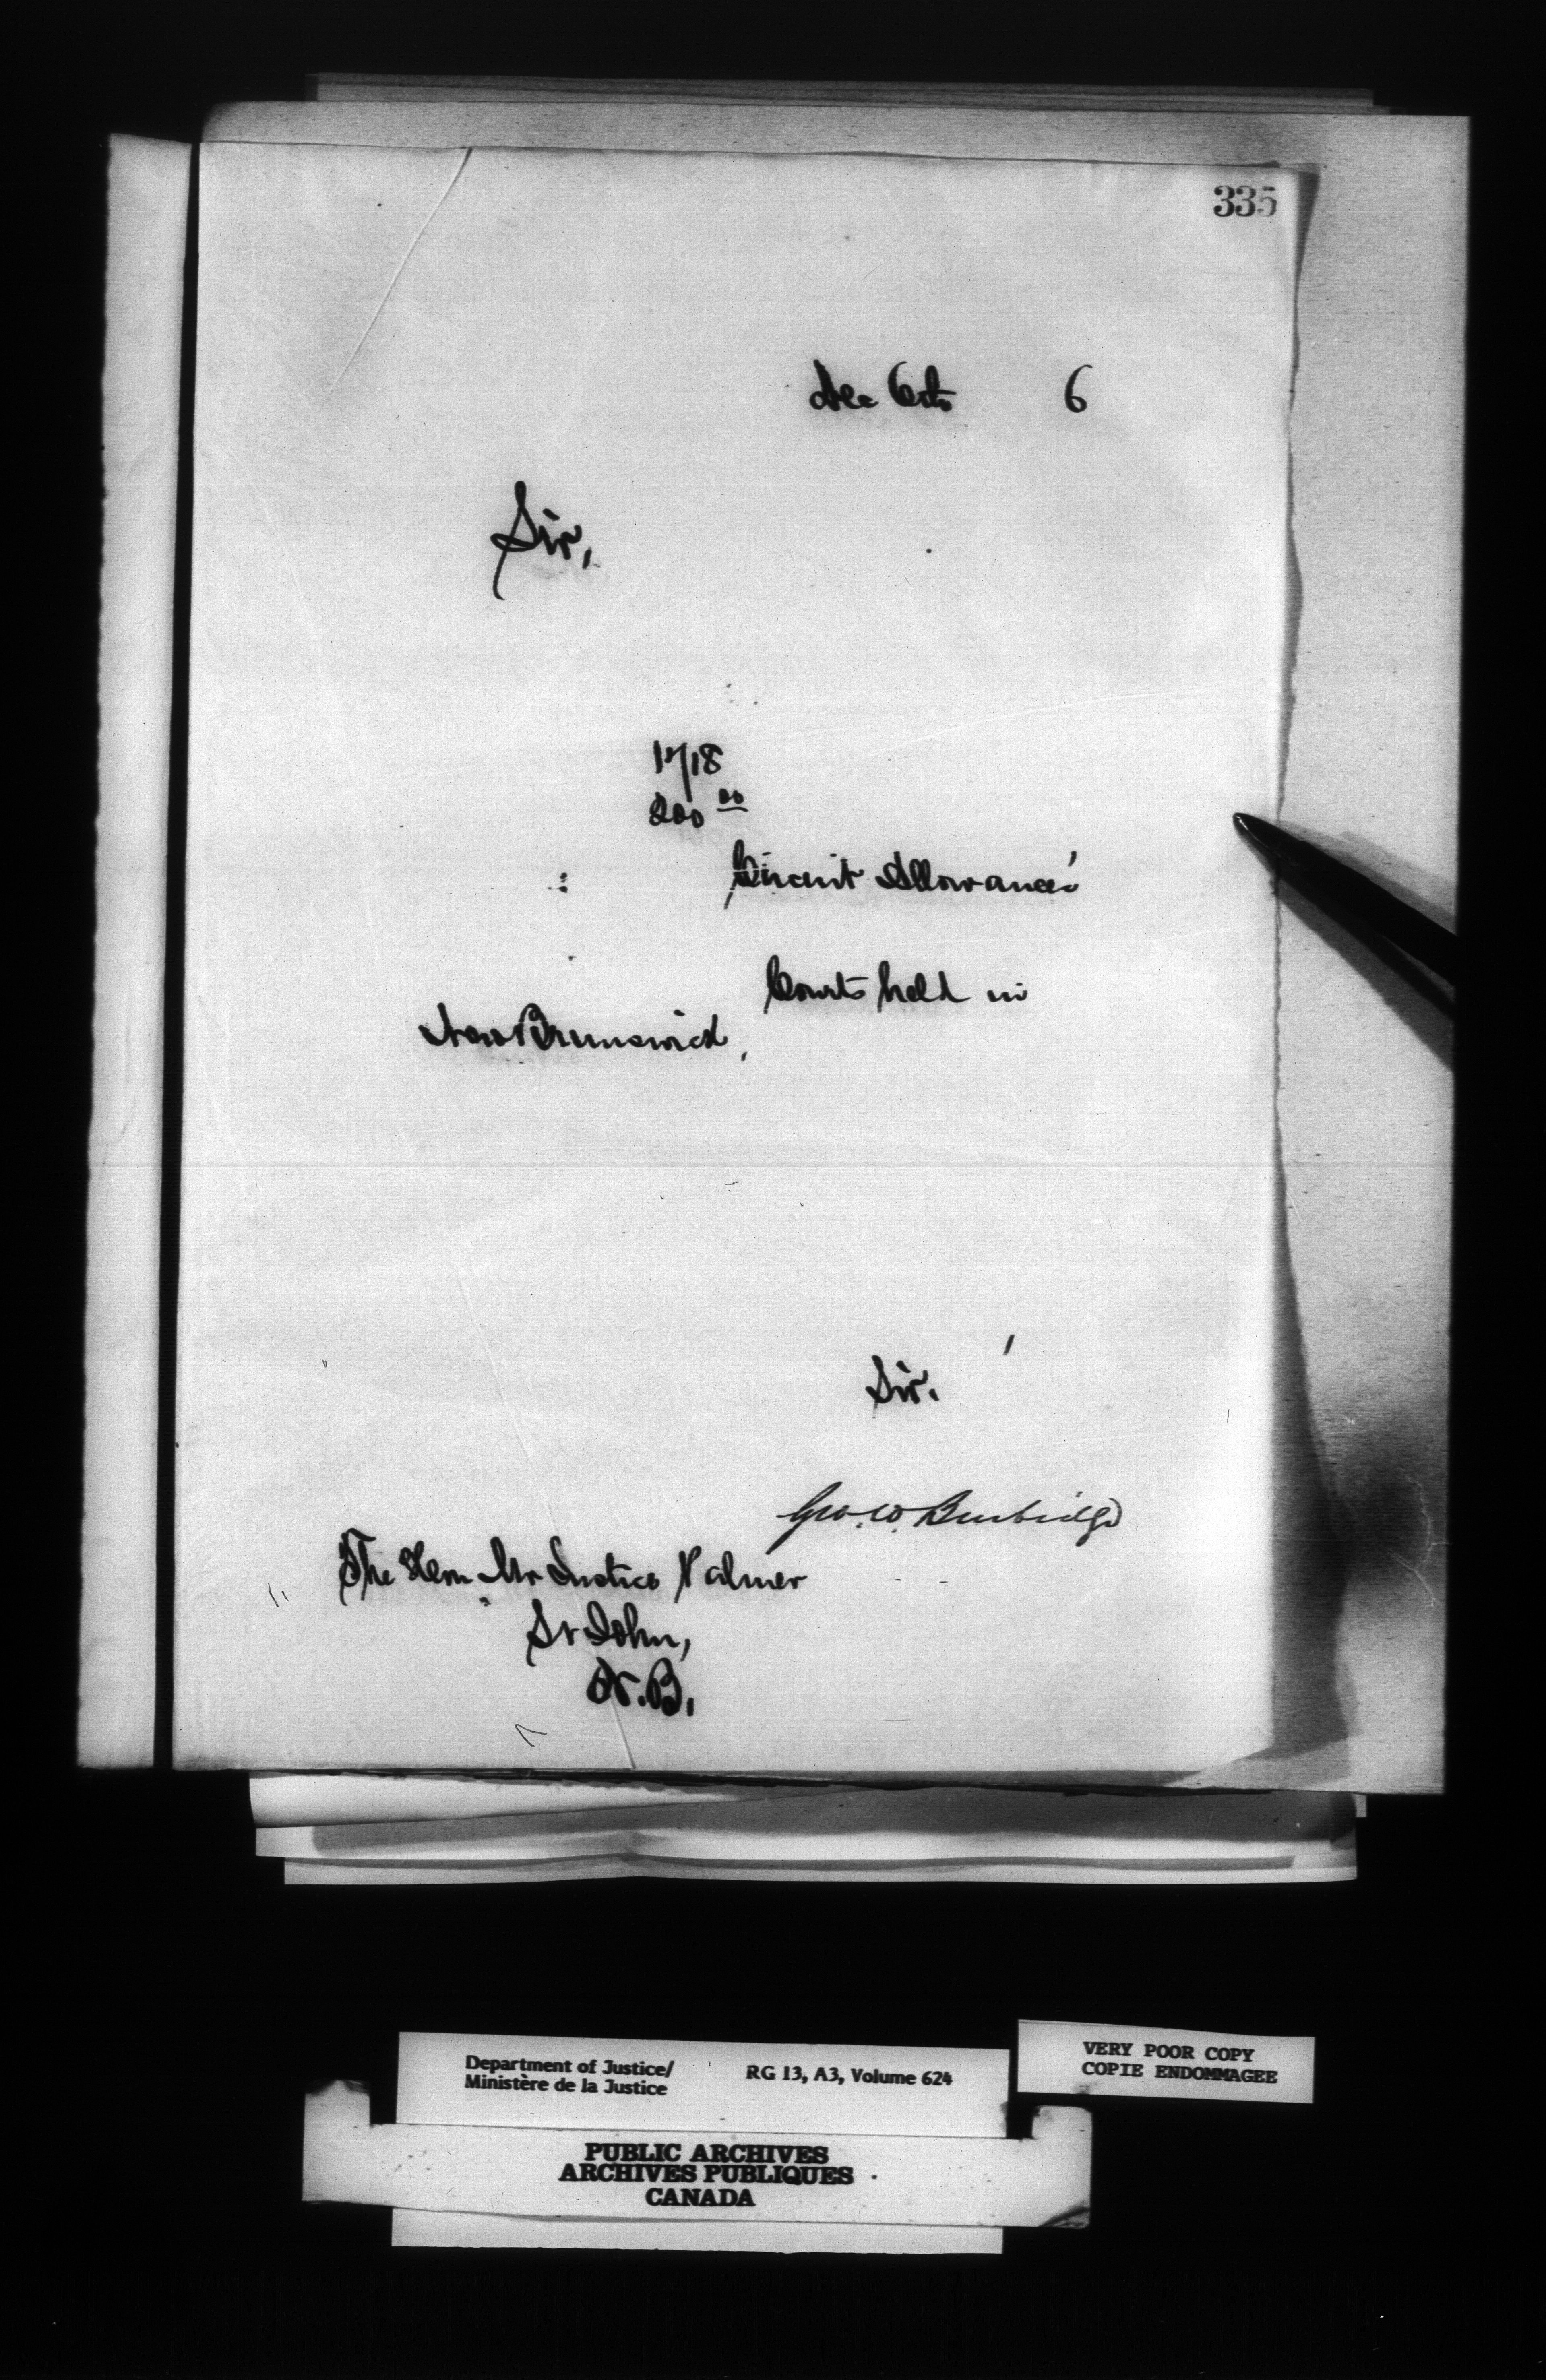 335
Dec 6th 6
Sir,
1718
200 00
Circuit Allowance
Courts held in
New Brunswick,
Sir.
Geo. W. Burbidge
The Hon. Mr Justice Palmer
St John,
N.B.
Department of Justice/
Ministère de la Justice
RG 13, A3, Volume 624
VERY POOR COPY
COPIE ENDOMMAGEE
PUBLIC ARCHIVES
ARCHIVES PUBLIQUES
CANADA